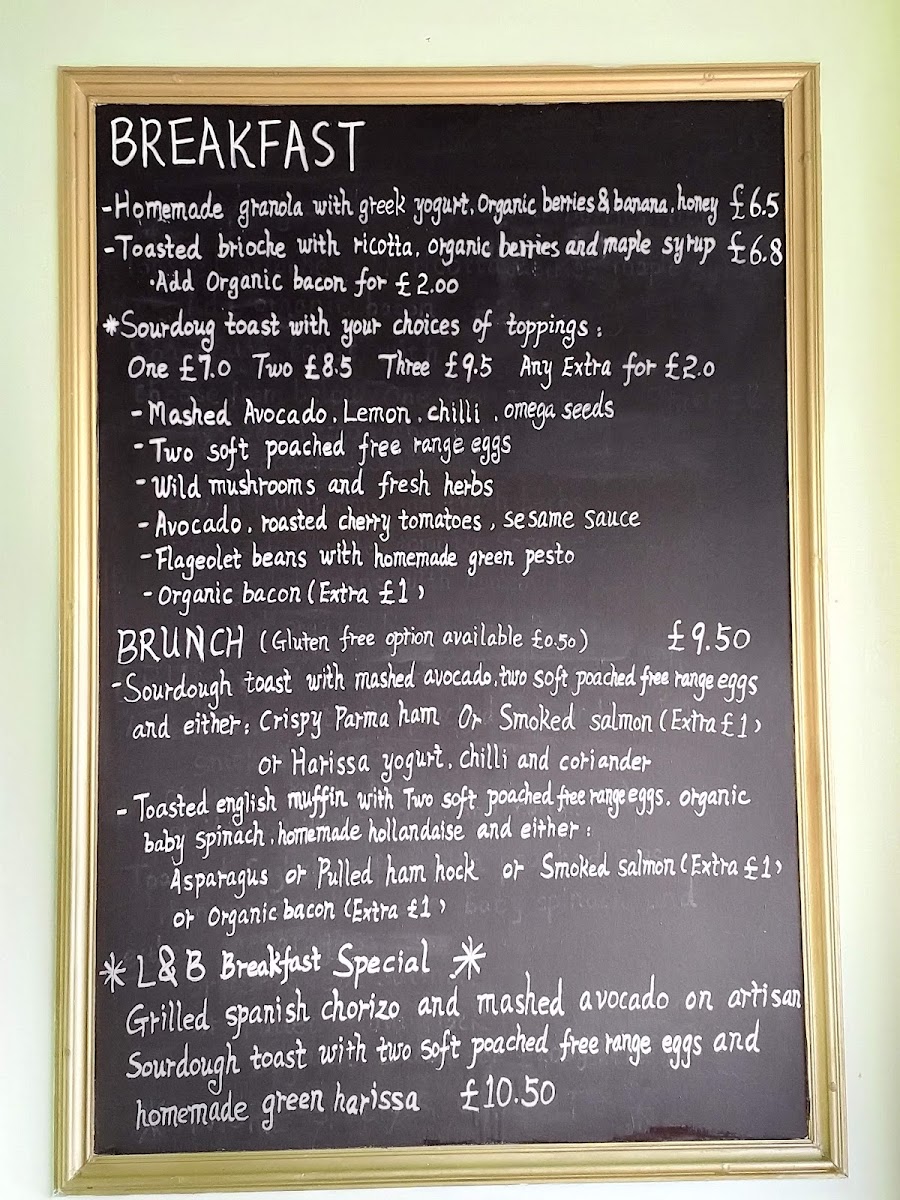 BREAKFAST
-Homemade granola with greek yogurt, Organic berries & banana, honey £6.5
-Toasted brioche with ricotta, organic berries and maple syrup £6.8
·Add Organic bacon for £2.00
*Sourdoug toast with your choices of toppings:
One £7.0 Two £8.5 Three £9.5 Any Extra for £2.0
-Mashed Avocado, Lemon, chilli, omega seeds
-Two soft poached free range eggs
-Wild mushrooms and fresh herbs
-Avocado, roasted cherry tomatoes, sesame sauce
-Flageolet beans with homemade green pesto
-Organic bacon (Extra £1)
BRUNCH (Gluten free option available £0.50) £9.50
-Sourdough toast with mashed avocado, two soft poached free range eggs
and either: Crispy Parma ham Or Smoked salmon (Extra £1)
or Harissa yogurt, chilli and coriander
-Toasted english muffin with Two soft poached free range eggs, organic
baby spinach, homemade hollandaise and either:
Asparagus or Pulled ham hock or Smoked salmon (Extra £1)
or Organic bacon (Extra £1)
*L&B Breakfast Special *
Grilled spanish chorizo and mashed avocado on artisan
Sourdough toast with two soft poached free range eggs and
homemade green harissa £10.50